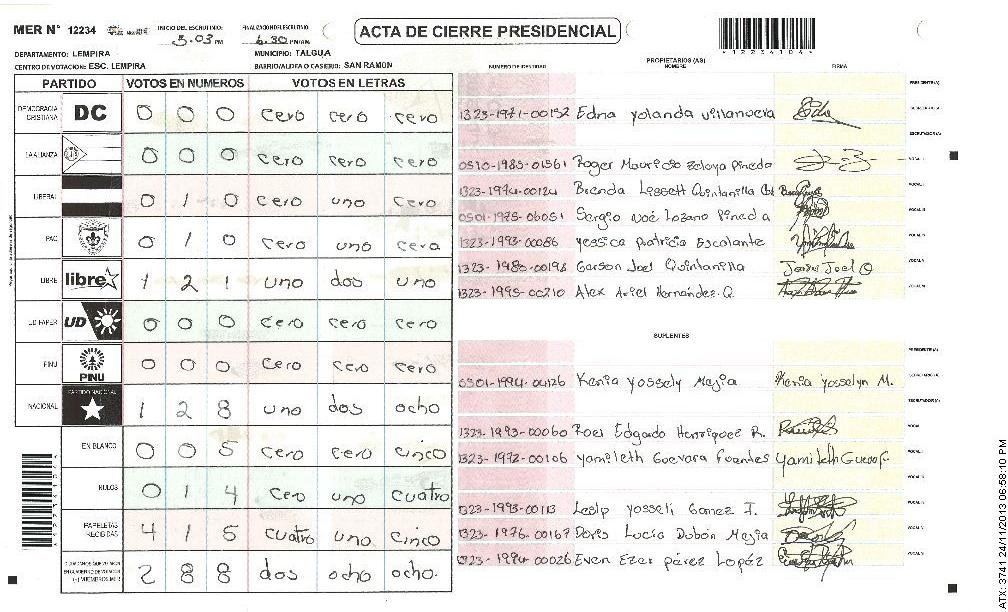 MER Nº 12234
INICIO DEL ESCRUTINIO: 5.03 PM
FINALIZACION ESCRUTINIO: 6.30 PM/AM
ACTA DE CIERRE PRESIDENCIAL
12234104
DEPARTAMENTO: LEMPIRA
MUNICIPIO: TALGUA
CENTRO DE VOTACION: ESC. LEMPIRA
BARRIO/ALDEA O CASERIO: SAN RAMON
PARTIDO VOTOS EN NUMEROS VOTOS EN LETRAS
DEMOCRACIA CRISTIANA DC 0 0 0 cero cero cero
LA ALIANZA 0 0 0 cero cero cero
LIBERAL 0 1 0 cero uno cero
PAC 0 1 0 cero uno cero
LIBRE libre 1 2 1 uno dos uno
UD FAPER UD 0 0 0 cero cero cero
PINU PINU 0 0 0 cero cero cero
NACIONAL PARTIDO NACIONAL 1 2 8 uno dos ocho
EN BLANCO 0 0 5 cero cero cinco
NULOS 0 1 4 cero uno cuatro
PAPELETAS RECIBIDAS 4 1 5 cuatro uno cinco
2 8 8 dos ocho ocho.
NUMERO DE IDENTIDAD
PROPIETARIOS (AS)
NOMBRE
FIRMA
PRESIDENTE(A)
1323-1971-00152 Edna yolanda villanueva
SECRETARIO(A)
ESCRUTADOR(A)
0510-1985-01561 Roger Mauricio Zelaya Pineda
VOCAL I
1323-1994-00124 Brenda Lissett Quintanilla
VOCAL II
0501-1975-06051 Sergio Noé Lozano Pineda
VOCAL III
1323-1993-00086 yessica patricia Escalante
VOCAL IV
1323-1985-00198 Gerson Joel Quintanilla
VOCAL V
1323-1995-00210 Alex Ariel Hernández. Q.
VOCAL VI
SUPLENTES
PRESIDENTE(A)
0301-1994-00126 Kenia yossely Mejia Kenia yosselyn M.
SECRETARIO(A)
ESCRUTADOR(A)
1323-1993-00060 Roel Edgardo Henriquez R.
1323-1972-00106 yamileth Guevara Fuentes Yamileth Guevara F.
1323-1993-00113 Leslp yosseli Gomez I.
1323-1976-00167 Doris Lucia Dubón Mejia
1323-1994-00026 Even Ezer pérez Lopéz
ATX: 3741 24/11/2013 06:58:10 PM